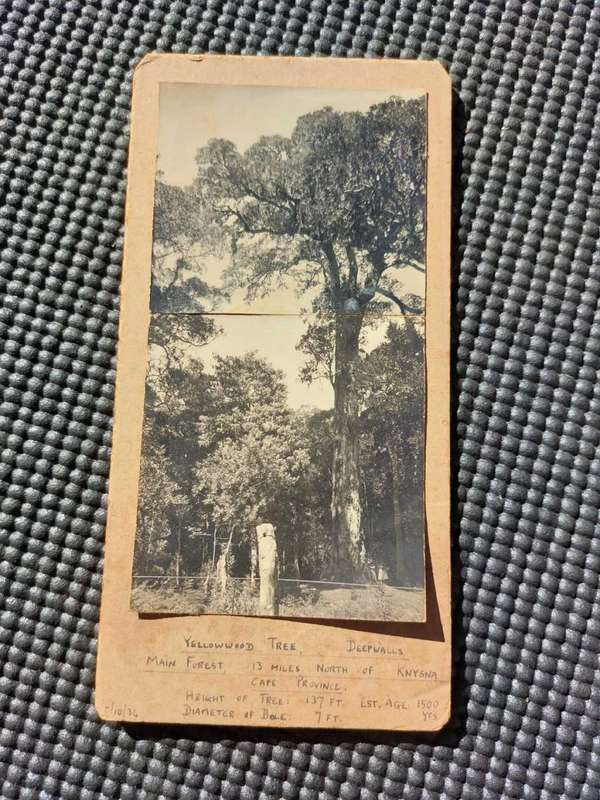 YELLOWWOOD TREE, DEEPWALLS
MAIN FOREST 13 MILES NORTH OF KNYSNA
CAPE PROVINCE.
HEIGHT OF TREE: 137 FT. EST. AGE: 1500
DIAMETER OF BOLE: 7 FT. YRS
/10/36